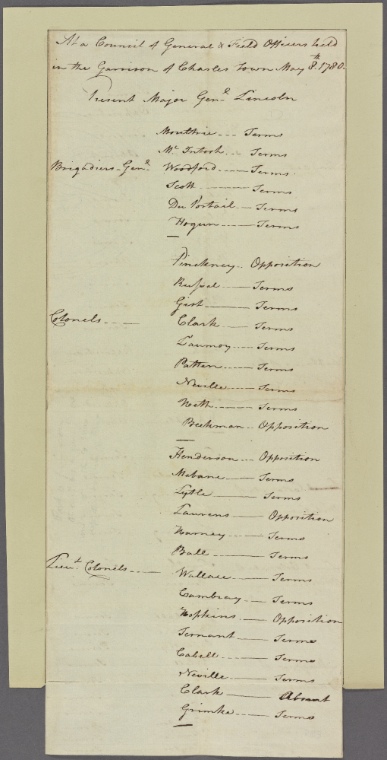 At a Council of General & Field Officers held
in the Garrison of Charles Town May 8th. 1780.
Present Major Genl. Lincoln
Moultrie Terms
Mc. Intosh Terms
Brigadiers Genl. Woodford Terms
Scott Terms
Du Portail Terms
Hogun Terms
Pinckney Opposition
Russel Terms
Gist Terms
Colonels Clark Terms
Laumoy Terms
Patten Terms
Neville Terms
Heth Terms
Beekman Opposition
Henderson Opposition
Mebane Terms
Lytle Terms
Laurens Opposition
Harney Terms
Ball Terms
Lieut. Colonels Wallace Terms
Cambray Terms
Hopkins Opposition
Ternant Terms
Cabell Terms
Neville Terms
Clark Absent
Grimke Terms